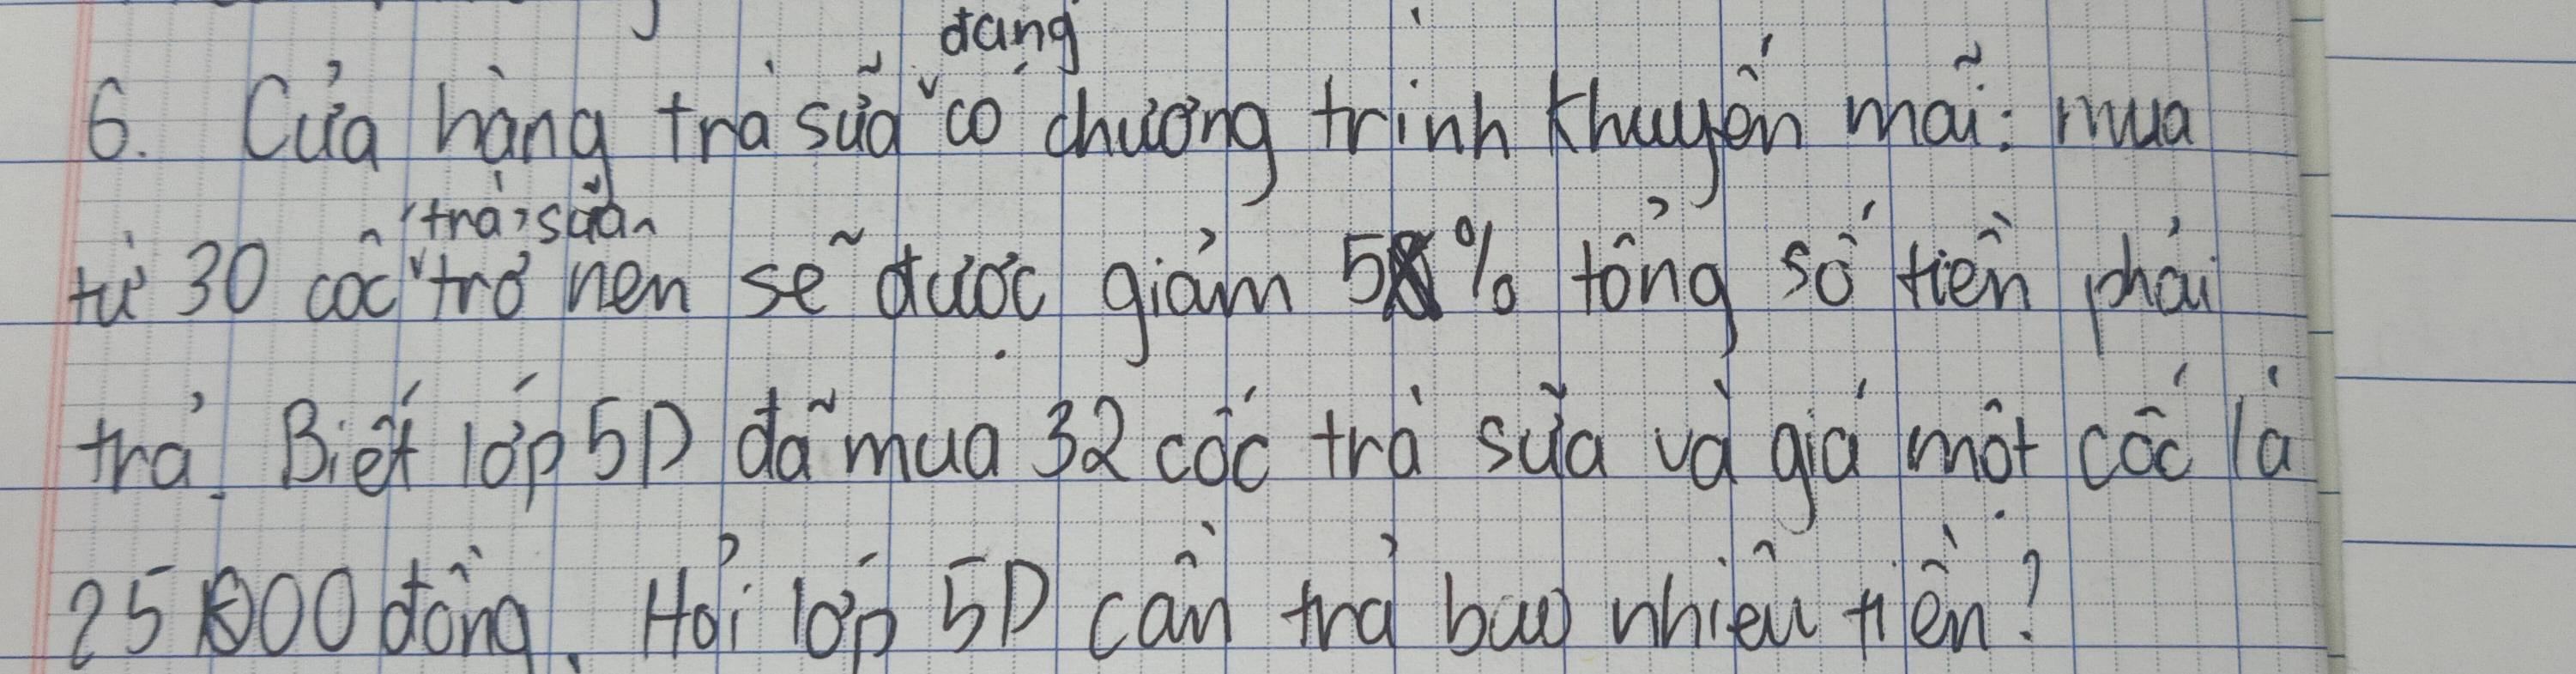 6. Cửa hàng trà sữa đang có chương trình khuyến mãi: mua
từ 30 cốc trà sữa trở nên sẽ được giảm 5% tổng số tiền phải
trả. Biết lớp 5D đã mua 32 cốc trà sữa và giá một cốc là
25 000 đồng. Hỏi lớp 5D cần trả bao nhiêu tiền?